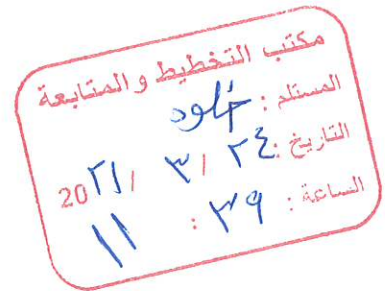 مكتب التخطيط والمتابعة
المستلم : خلود
التاريخ : ٢٤ / ٣ / ٢١ 20
الساعة : ٣٩ : ١١